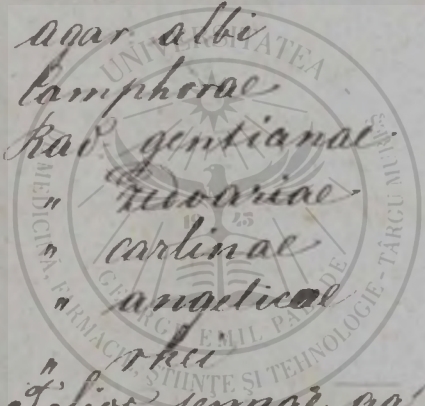 agar albi
Camphorae
Rad. gentianae
" Zedoariae
" carlinae
" angelicae
" rhei
Folior. sennae aa
UNIVERSITATEA
MEDICINĂ, FARMACIE, ȘTIINȚE ȘI TEHNOLOGIE - TÂRGU MUREȘ
GEORGE EMIL PALADE
1945